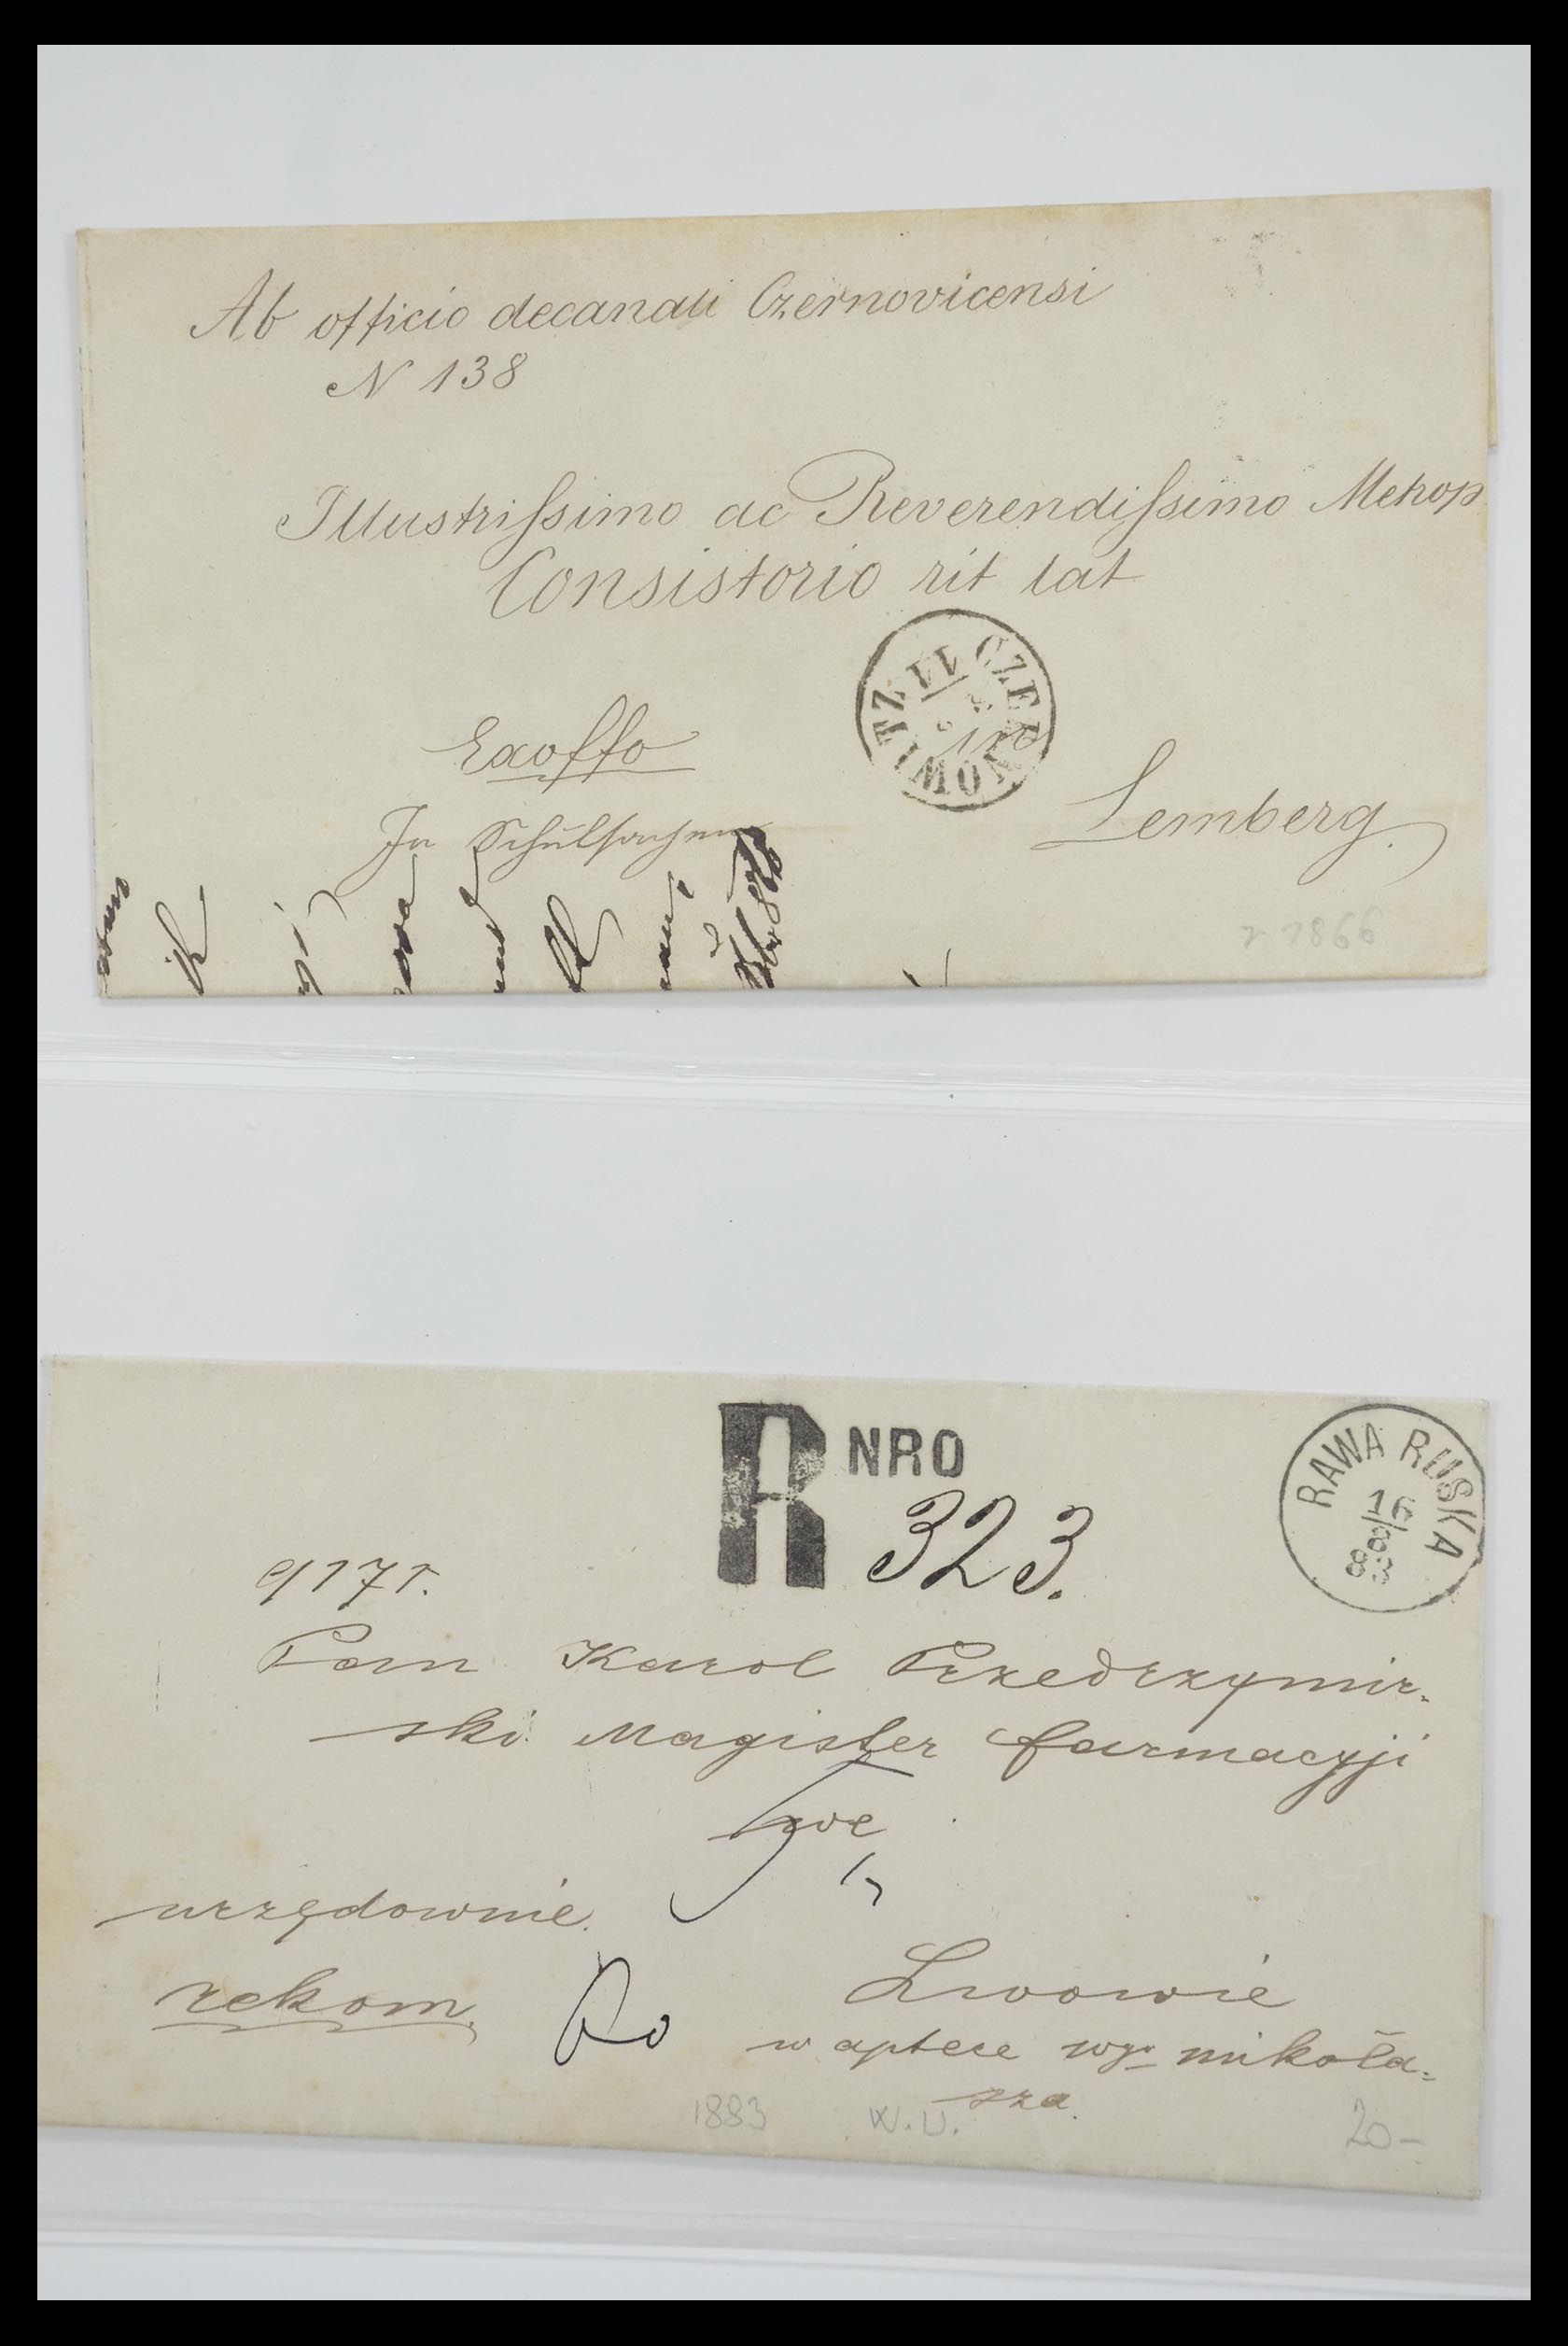 Ab officio decanali Czernovicensi
N 138
Illustrissimo ac Reverendissimo Metrop
Consistorio rit lat
CZERNOWITZ
11
Exoffo
in
In Schulsachen
Lemberg.
1866
R NRO
323.
RAWA RUSKA
16
8
83
9171.
Pan Karol Przedrzymir-
ski Magister farmacyji
we
urzędownie.
rekom.
Lwowie
w aptece wgo mikoła-
sza.
1883
W.U.
20-